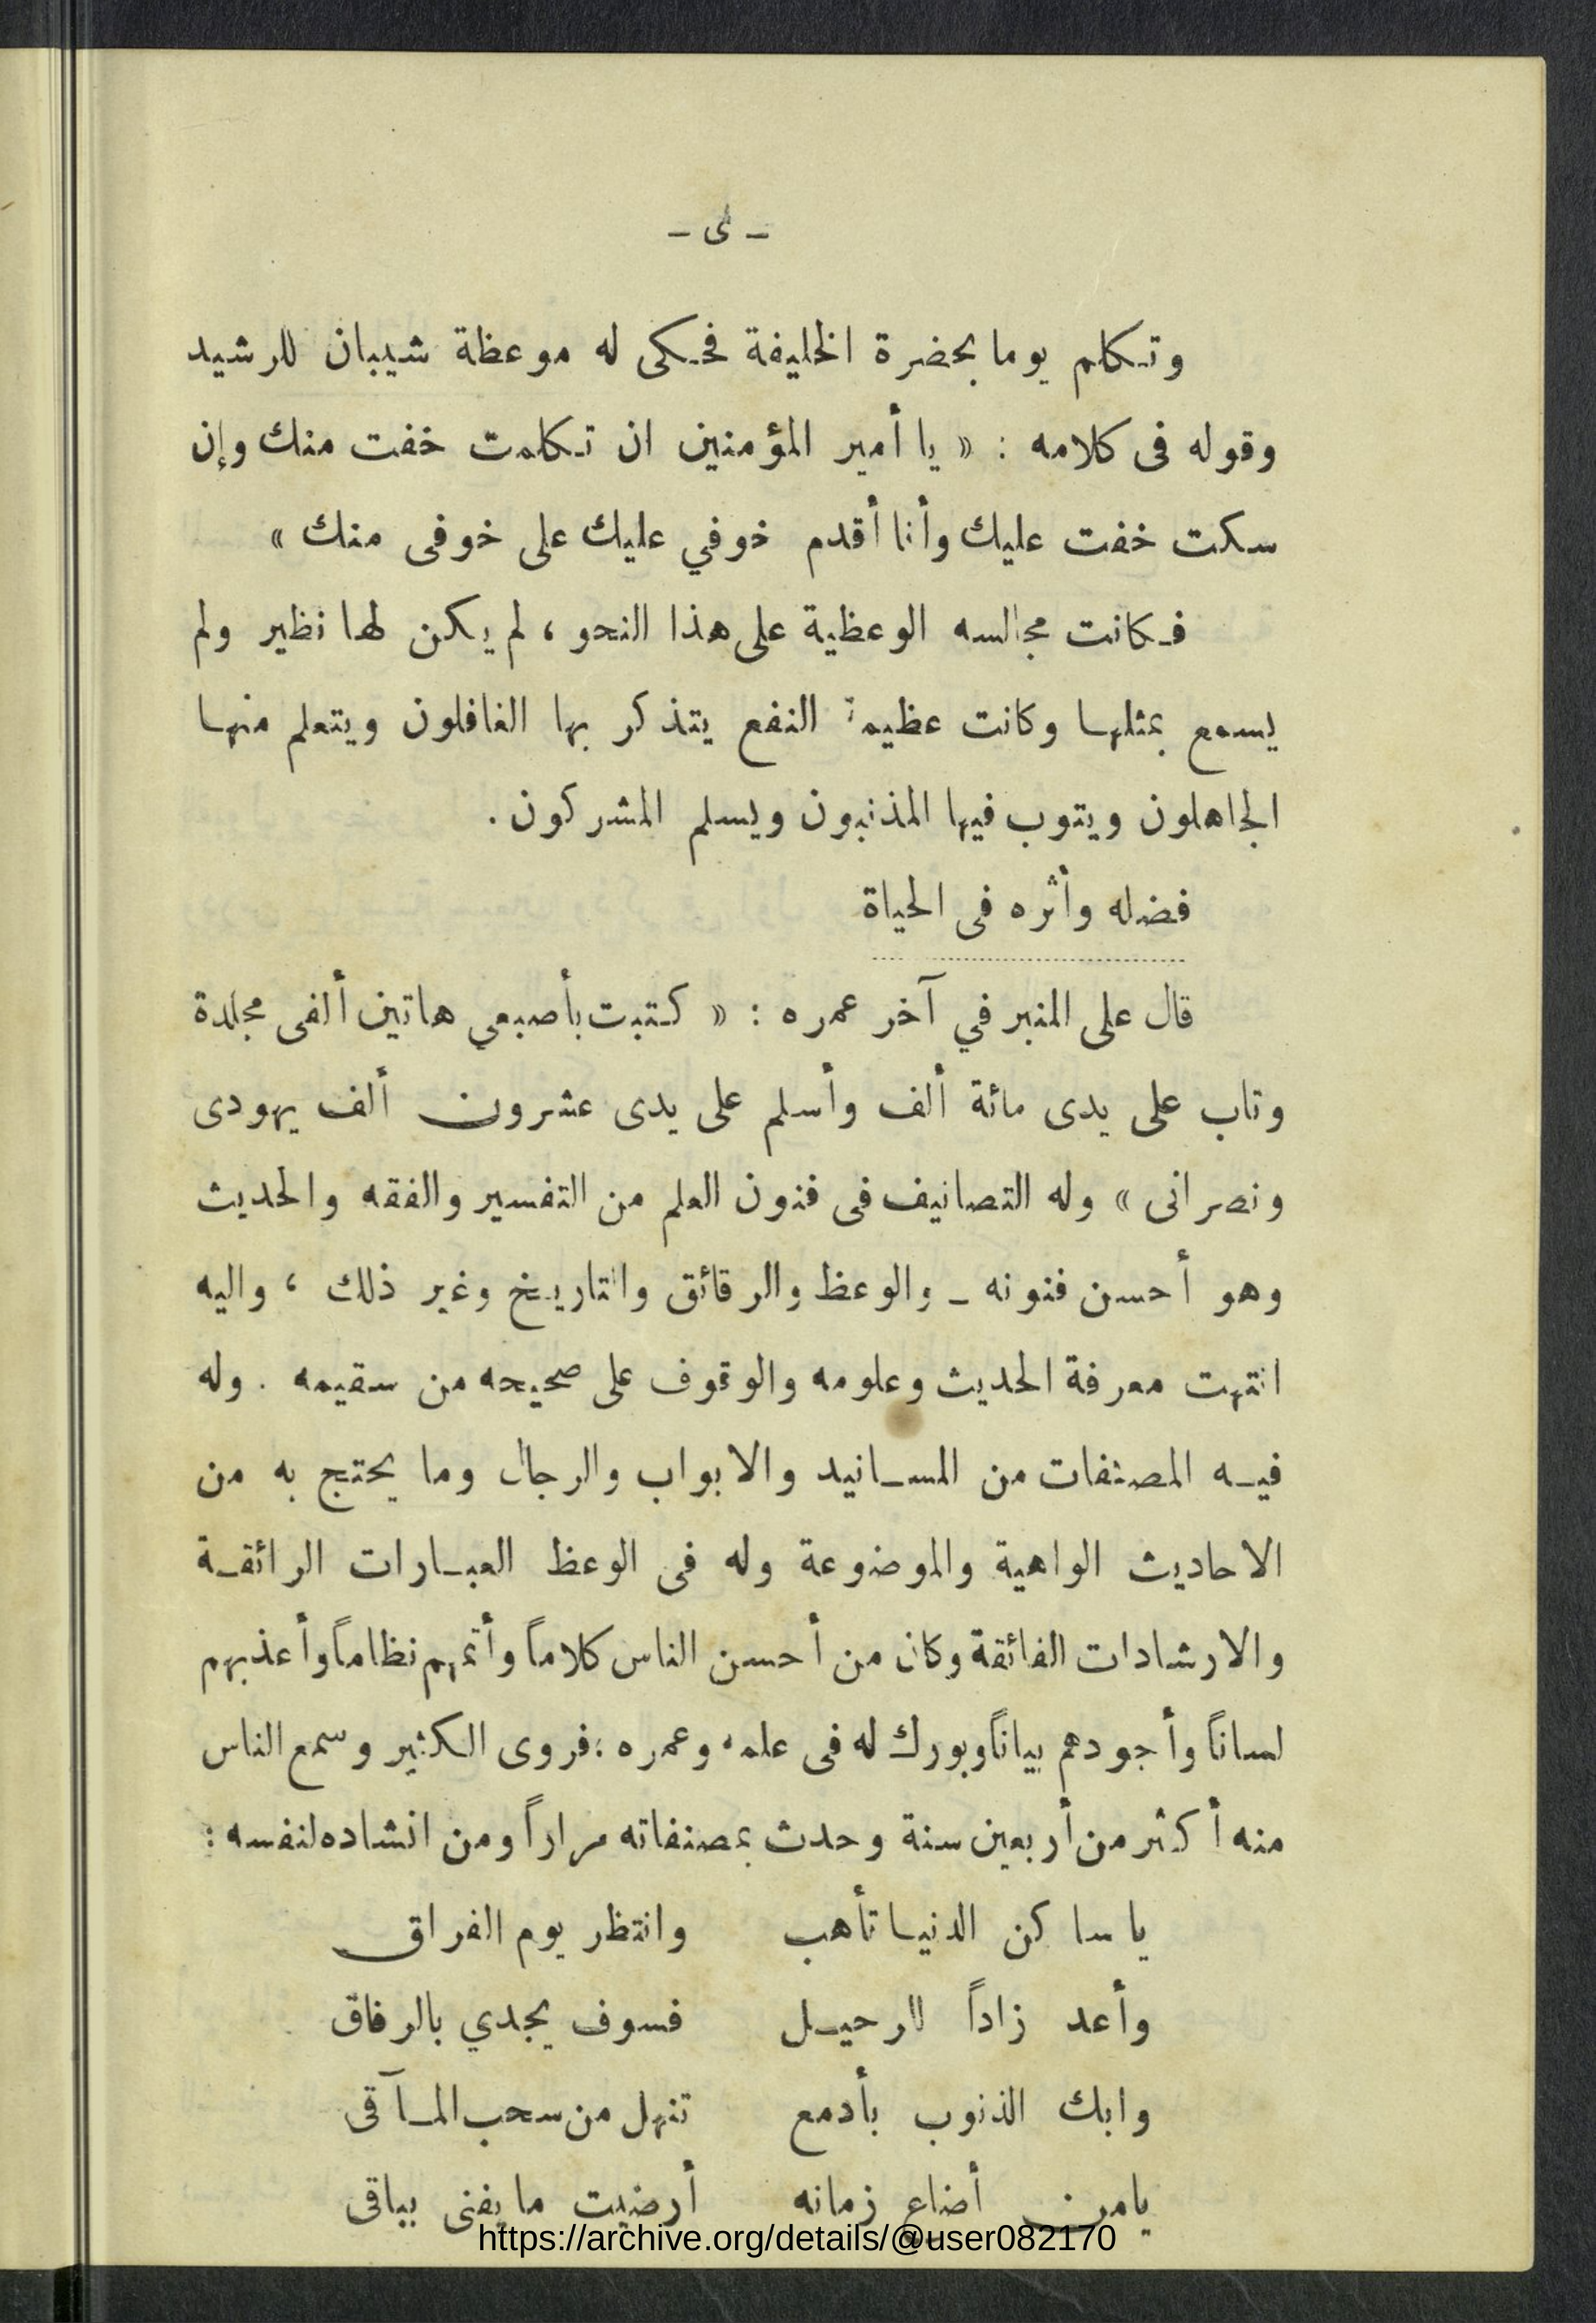 - ى -
وتكلم يوما بحضرة الخليفة فحكى له موعظة شيبان للرشيد
وقوله فى كلامه : « يا أمير المؤمنين ان تكلمت خفت منك وإن
سكت خفت عليك وأنا أقدم خوفي عليك على خوفى منك »
فكانت مجالسه الوعظية على هذا النحو ، لم يكن لها نظير ولم
يسمع بمثلها وكانت عظيمة النفع يتذكر بها الغافلون ويتعلم منها
الجاهلون ويتوب فيها المذنبون ويسلم المشركون .
فضله وأثره فى الحياة
قال على المنبر في آخر عمره : « كتبت بأصبعي هاتين ألفى مجلدة
وتاب على يدى مائة ألف وأسلم على يدى عشرون ألف يهودى
ونصرانى » وله التصانيف فى فنون العلم من التفسير والفقه والحديث
وهو أحسن فنونه - والوعظ والرقائق والتاريخ وغير ذلك ، واليه
انتهت معرفة الحديث وعلومه والوقوف على صحيحه من سقيمه . وله
فيه المصنفات من المسانيد والابواب والرجال وما يحتج به من
الاحاديث الواهية والموضوعة وله فى الوعظ العبارات الرائقة
والارشادات الفائقة وكان من أحسن الناس كلاماً وأتمهم نظاماً وأعذبهم
لساناً وأجودهم بياناً وبورك له فى علمه وعمره ؛ فروى الكثير وسمع الناس
منه أكثر من أربعين سنة وحدث بمصنفاته مراراً ومن انشاده لنفسه :
يا ساكن الدنيا تأهب وانتظر يوم الفراق
وأعد زاداً للرحيل فسوف يجدي بالرفاق
وابك الذنوب بأدمع تنهل من سحب المآقى
يامن أضاع زمانه أرضيت ما يفنى بباقى
https://archive.org/details/@user082170